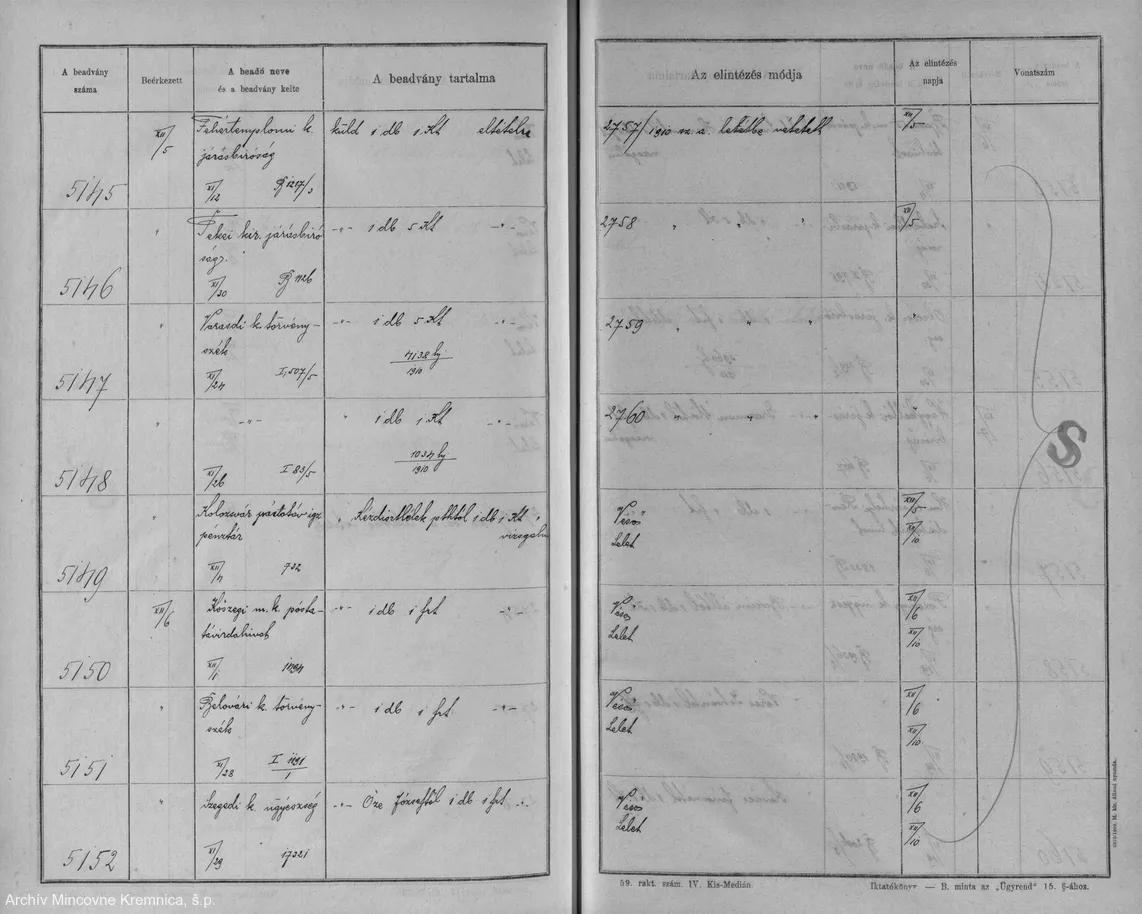 A beadvány száma
Beérkezett
A beadó neve és a beadvány kelte
A beadvány tartalma
Az elintézés módja
Az elintézés napja
Vonatszám
5145
XII/5
Fehértemplomi k.
járásbíróság
XI/12
1217/3
küld 1 db 1 Kt eltételre
2757/1910 sz. a. letétbe vétetett
XII/5
5146
"
járásbíró
ság
XI/30
1126
-"- 1 db 5 Kt -"-
2758 " " "
XII/5
5147
"
Varasdi k. törvény-
szék
XI/24
I. 507/5
-"- 1 db 5 Kt -"-
4138
1910
2759 " " "
"
5148
"
-"-
XI/26
I 83/5
" 1 db 1 Kt -"-
1034
1910
2760 " " "
"
5149
"
Kolozsvár
pénztár
XII/4
732
1 db 1 Kt
Véső
Lelet
XII/5
XII/10
5150
XII/6
Kőszegi m. k. posta-
távirdahivat
XII/1
-"- 1 db 1 frt -"-
Véső
Lelet
XII/6
XII/10
5151
"
Belovári k. törvény-
szék
XI/28
-"- 1 db 1 frt -"-
Véső
Lelet
XII/6
XII/10
5152
"
Szegedi k. ügyészség
XI/29
17321
-"- Őze Józseftől 1 db 1 frt
Véső
Lelet
XII/6
XII/10
S
59. rakt. szám. IV. Kis-Medián.
Iktatókönyv — B. minta az „Ügyrend" 15. §-ához.
Archív Mincovne Kremnica, š.p.